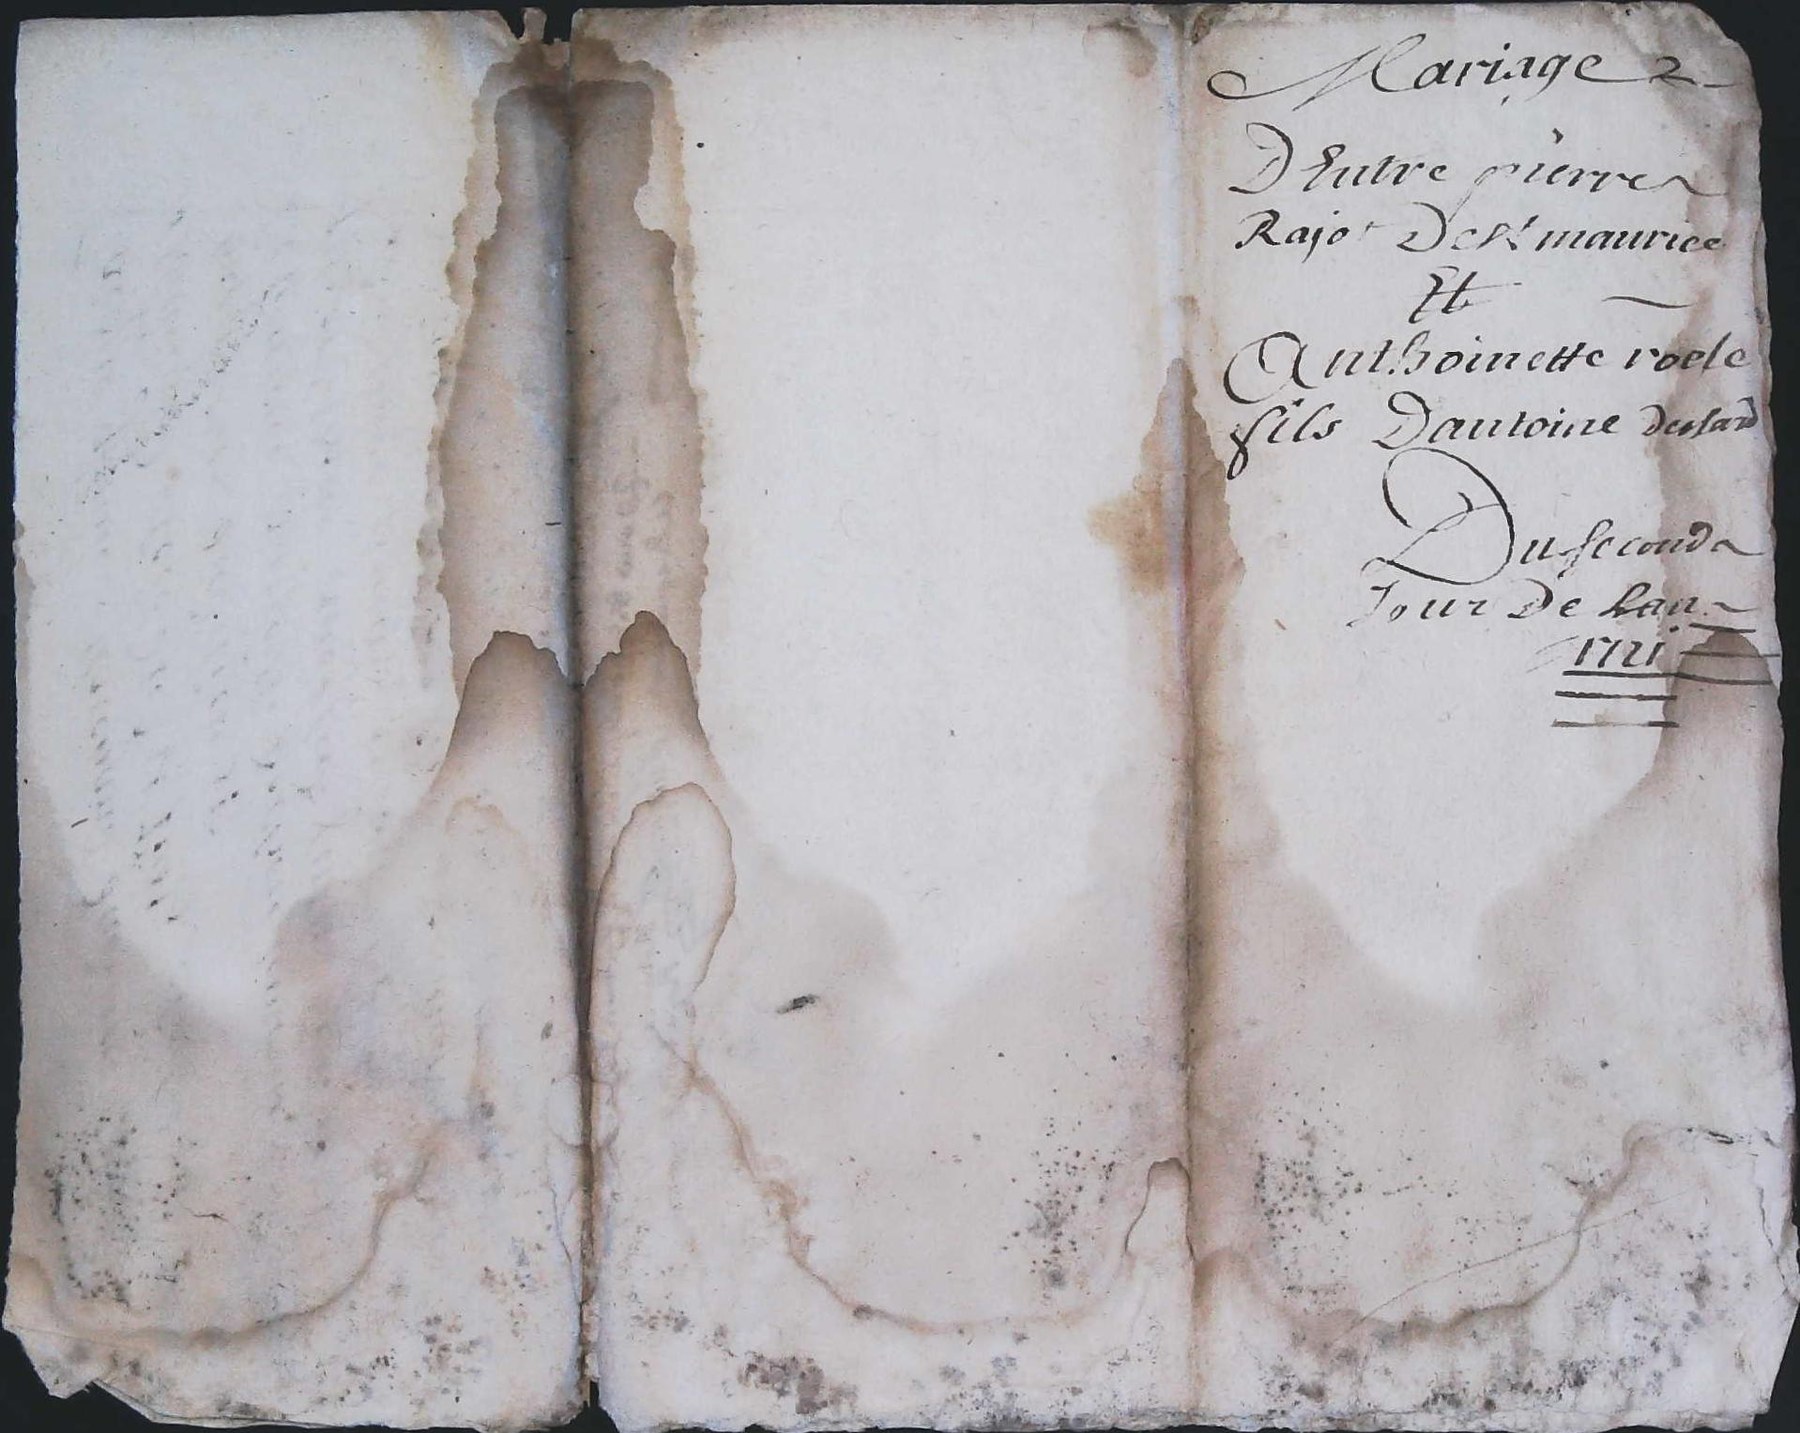 Mariage
D Entre pierre
Rajot De st maurice
Et
Anthoinette
fils Dantoine
Du second
Jour De Lan
1721